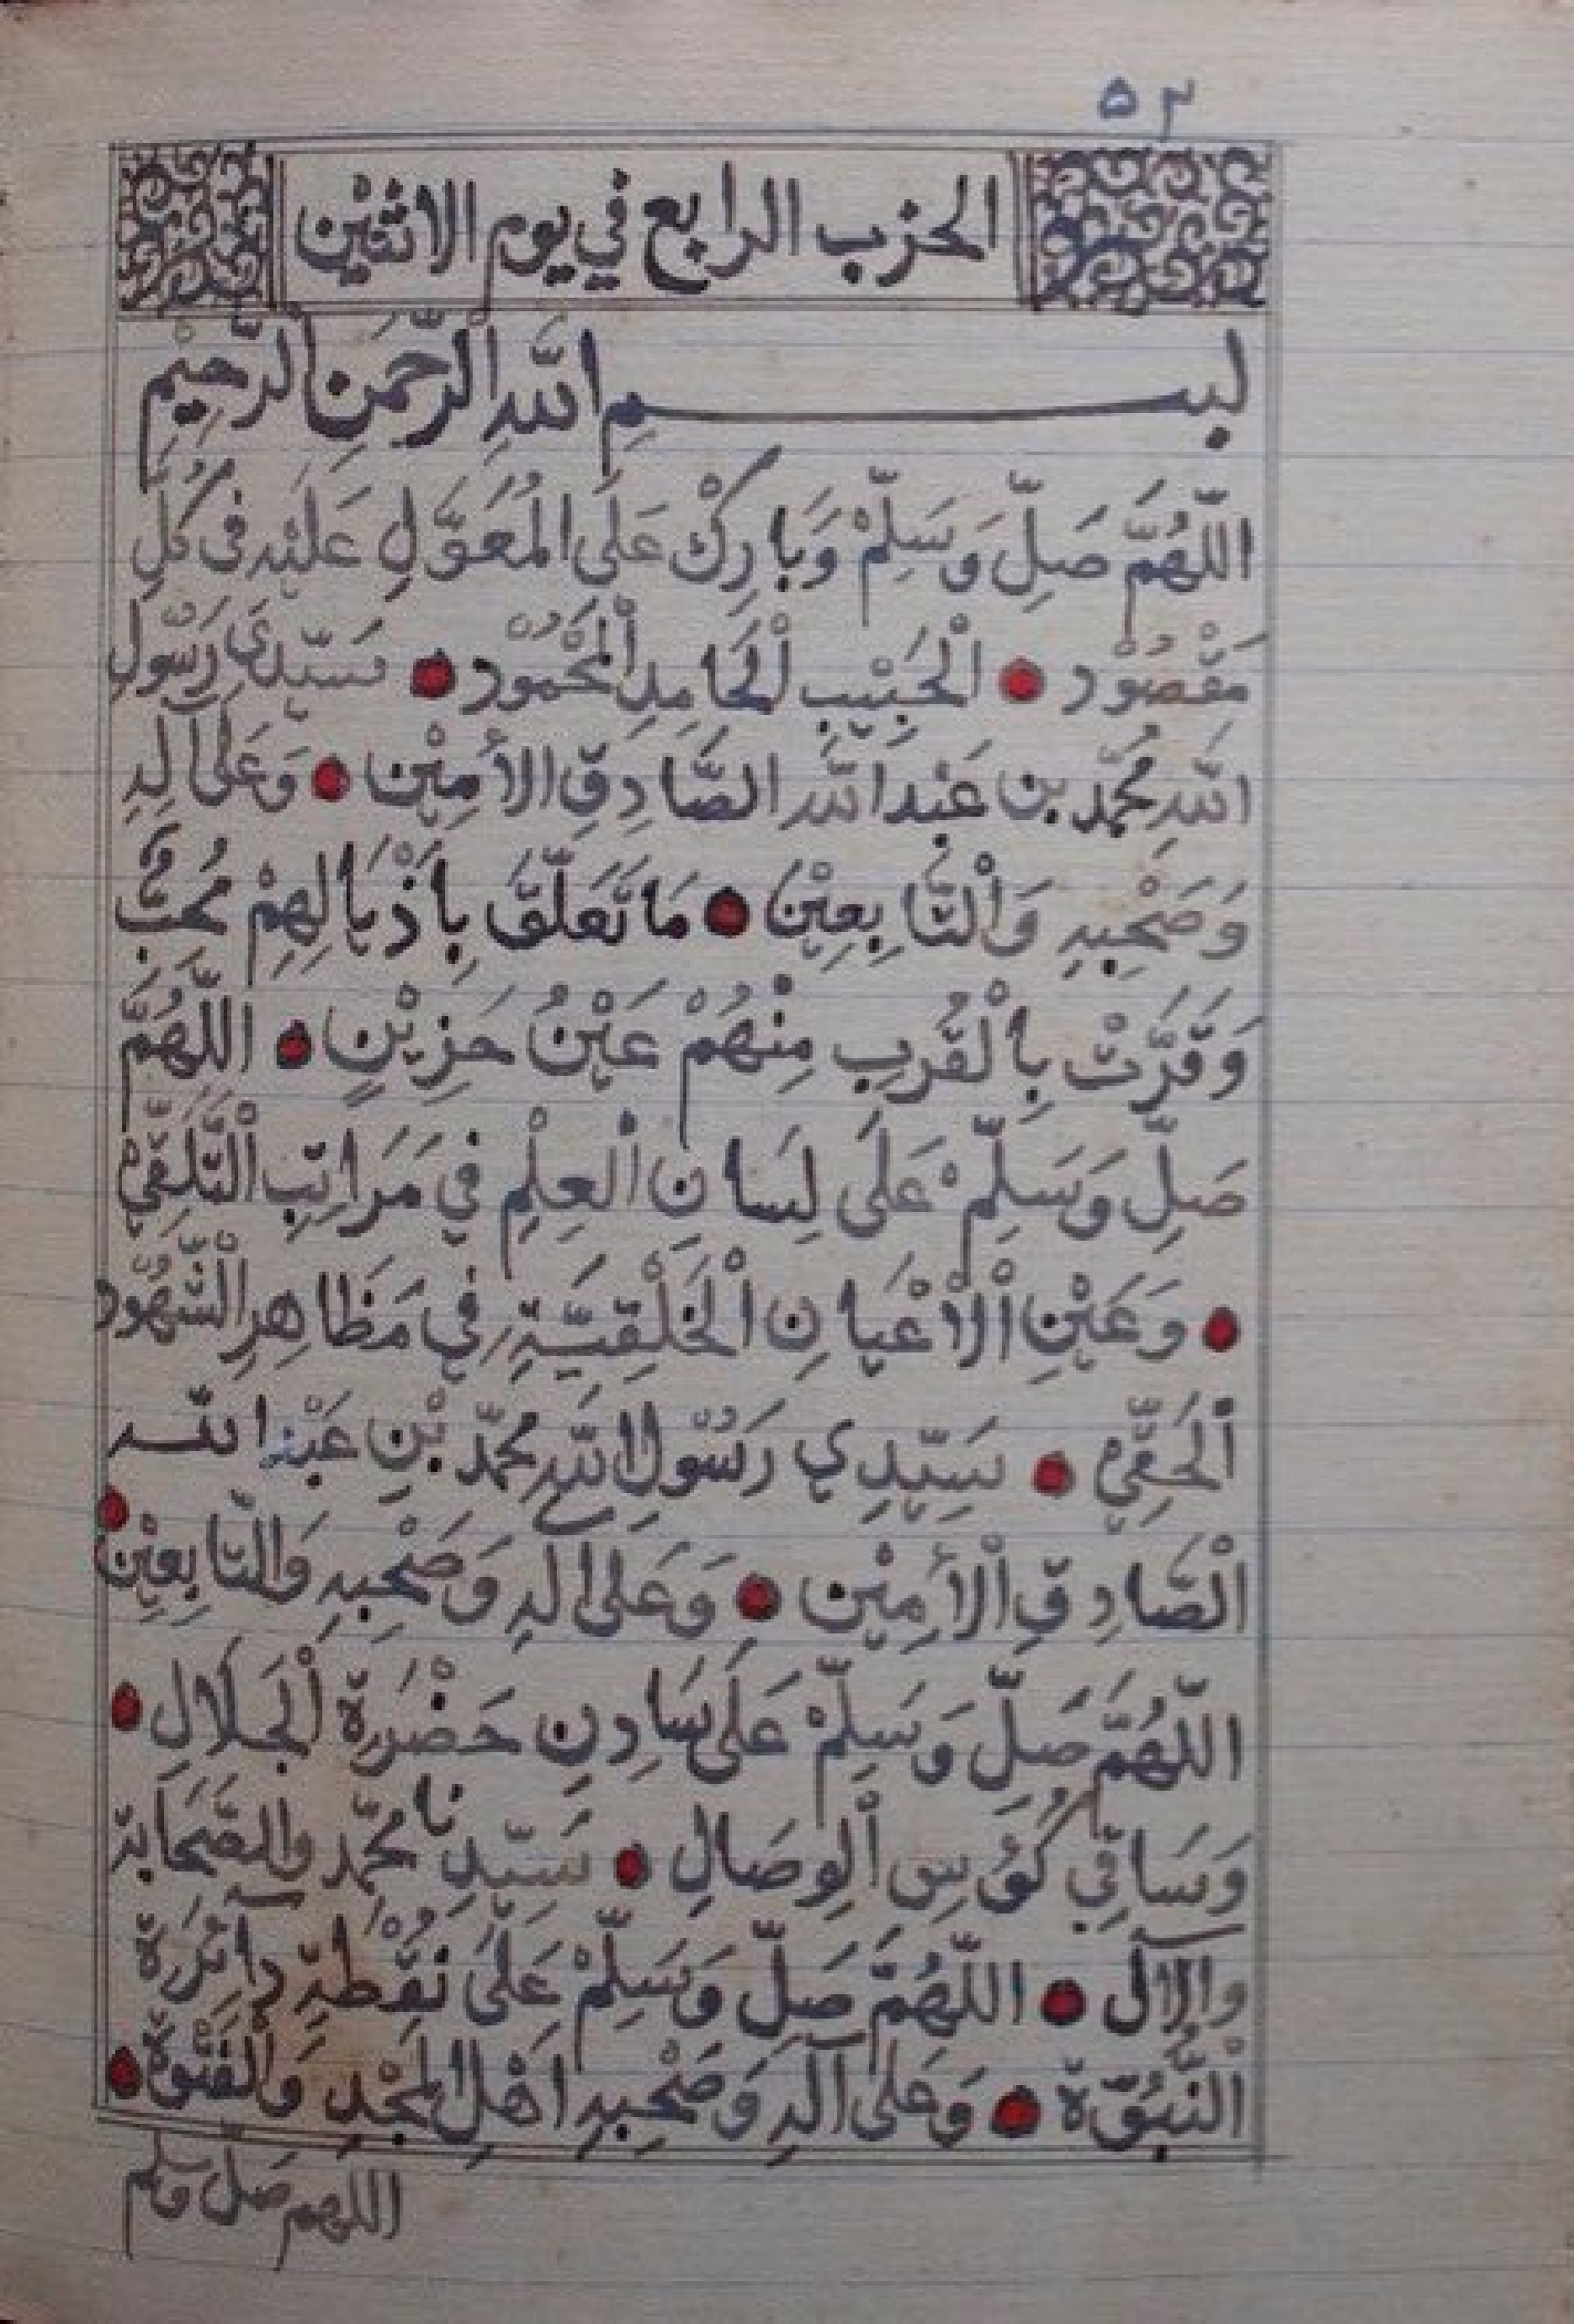 ٥٢
الحزب الرابع في يوم الاثنين
بســـــــــمِ اللّٰهِ الرَّحْمَنِ الرَّحِيْمِ
اللّٰهُمَّ صَلِّ وَسَلِّمْ وَبَارِكْ عَلَى المُعَوَّلِ عَلَيْهِ فِى كُلِّ
مَقْصُوْد ● اَلْحَبِيْبِ اَلْحَامِدِ اَلْمَحْمُوْد ● سَيِّدِي رَسُوْلِ
اللّٰهِ مُحَمَّد بن عَبْد اللّٰه الصَّادِقِ الأَمِيْن ● وَعَلَى آلِهِ
وَصَحْبِهِ وَاْلتَّابِعِيْنَ ● مَا تَعَلَّقَ بِاَذْيَالِهِمْ مُحِبٌّ
وَقَرَّتْ بِاْلقُرْبِ مِنْهُمْ عَيْنُ حَزِيْنٍ ● اللّٰهُمَّ
صَلِّ وَسَلِّمْ عَلَى لِسَانِ اْلعِلْمِ فِي مَرَاتِبِ اْلتَّلَقِّيْ
● وَعَيْنِ اْلاَعْيَانِ اْلخَلْقِيَّةِ فِي مَظَاهِرِ اْلشُّهُوْدِ
اَلْحَقِّيْ ● سَيِّدِي رَسُوْلِ اللّٰهِ مُحَمَّد بْنِ عَبْد اللّٰه
اْلصَّادِقِ اْلأَمِيْن ● وَعَلَى آلِهِ وَصَحْبِهِ وَالتَّابِعِيْنَ ●
اللّٰهُمَّ صَلِّ وَسَلِّمْ عَلَى سَادِنِ حَضْرَةِ اْلجَلَالِ ●
وَسَاقِي كُؤُسِ اْلوِصَالِ ● سَيِّدِنَا مُحَمَّد والصَّحَابَة
والآل ● اللّٰهُمَّ صَلِّ وَسَلِّمْ عَلَى نُقْطَةِ دَآئِرَةِ
اْلنُّبُوَّة ● وَعَلَى آلِهِ وَصَحْبِهِ اَهْلِ المَجْدِ وَاْلفُتُوَّة ●
اللهم صلّ وسلم